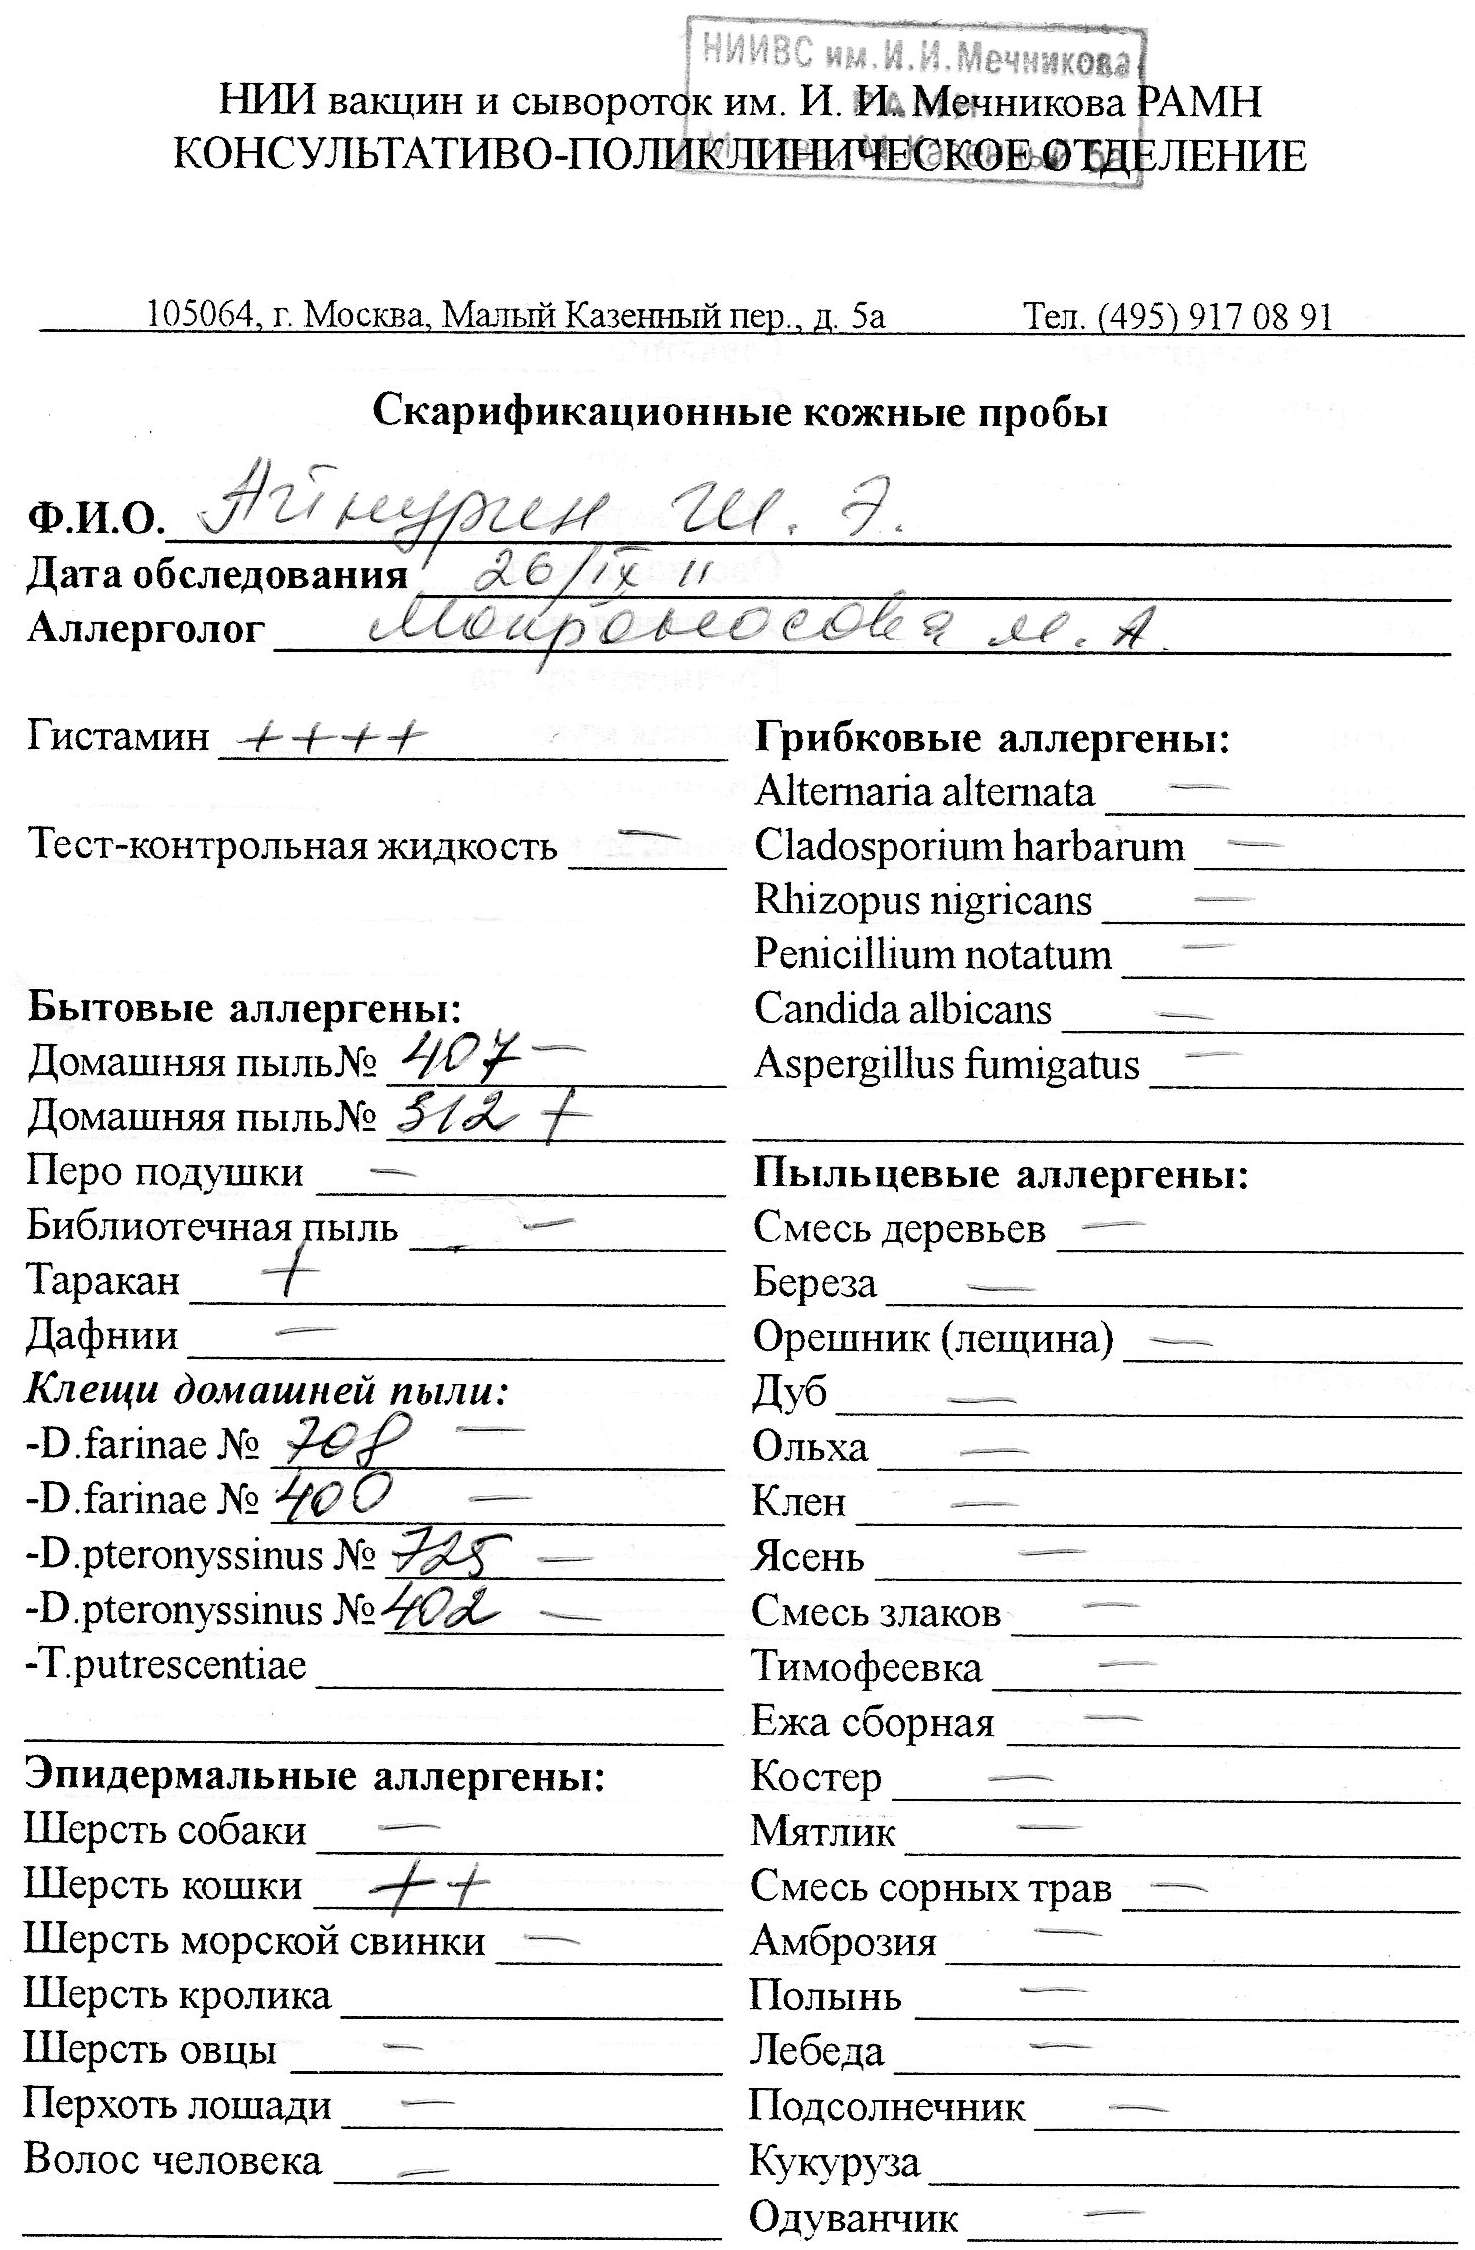 НИИВС им. И. И. Мечникова
РАМН
НИИ вакцин и сывороток им. И. И. Мечникова РАМН
КОНСУЛЬТАТИВО-ПОЛИКЛИНИЧЕСКОЕ ОТДЕЛЕНИЕ
105064, г. Москва, Малый Казенный пер., д. 5а Тел. (495) 917 08 91
Скарификационные кожные пробы
Ф.И.О. Ш. Э.
Дата обследования 26/IX 11
Аллерголог М. А.
Гистамин ++++
Тест-контрольная жидкость —
Бытовые аллергены:
Домашняя пыль№ 407 —
Домашняя пыль№ 312 +
Перо подушки —
Библиотечная пыль —
Таракан +
Дафнии —
Клещи домашней пыли:
-D.farinae № 708 —
-D.farinae № 400 —
-D.pteronyssinus № 725 —
-D.pteronyssinus № 402 —
-T.putrescentiae
Эпидермальные аллергены:
Шерсть собаки —
Шерсть кошки ++
Шерсть морской свинки —
Шерсть кролика
Шерсть овцы —
Перхоть лошади —
Волос человека —
Грибковые аллергены:
Alternaria alternata —
Cladosporium harbarum —
Rhizopus nigricans —
Penicillium notatum —
Candida albicans —
Aspergillus fumigatus —
Пыльцевые аллергены:
Смесь деревьев —
Береза —
Орешник (лещина) —
Дуб —
Ольха —
Клен —
Ясень —
Смесь злаков —
Тимофеевка —
Ежа сборная —
Костер —
Мятлик —
Смесь сорных трав —
Амброзия —
Полынь —
Лебеда —
Подсолнечник —
Кукуруза
Одуванчик —